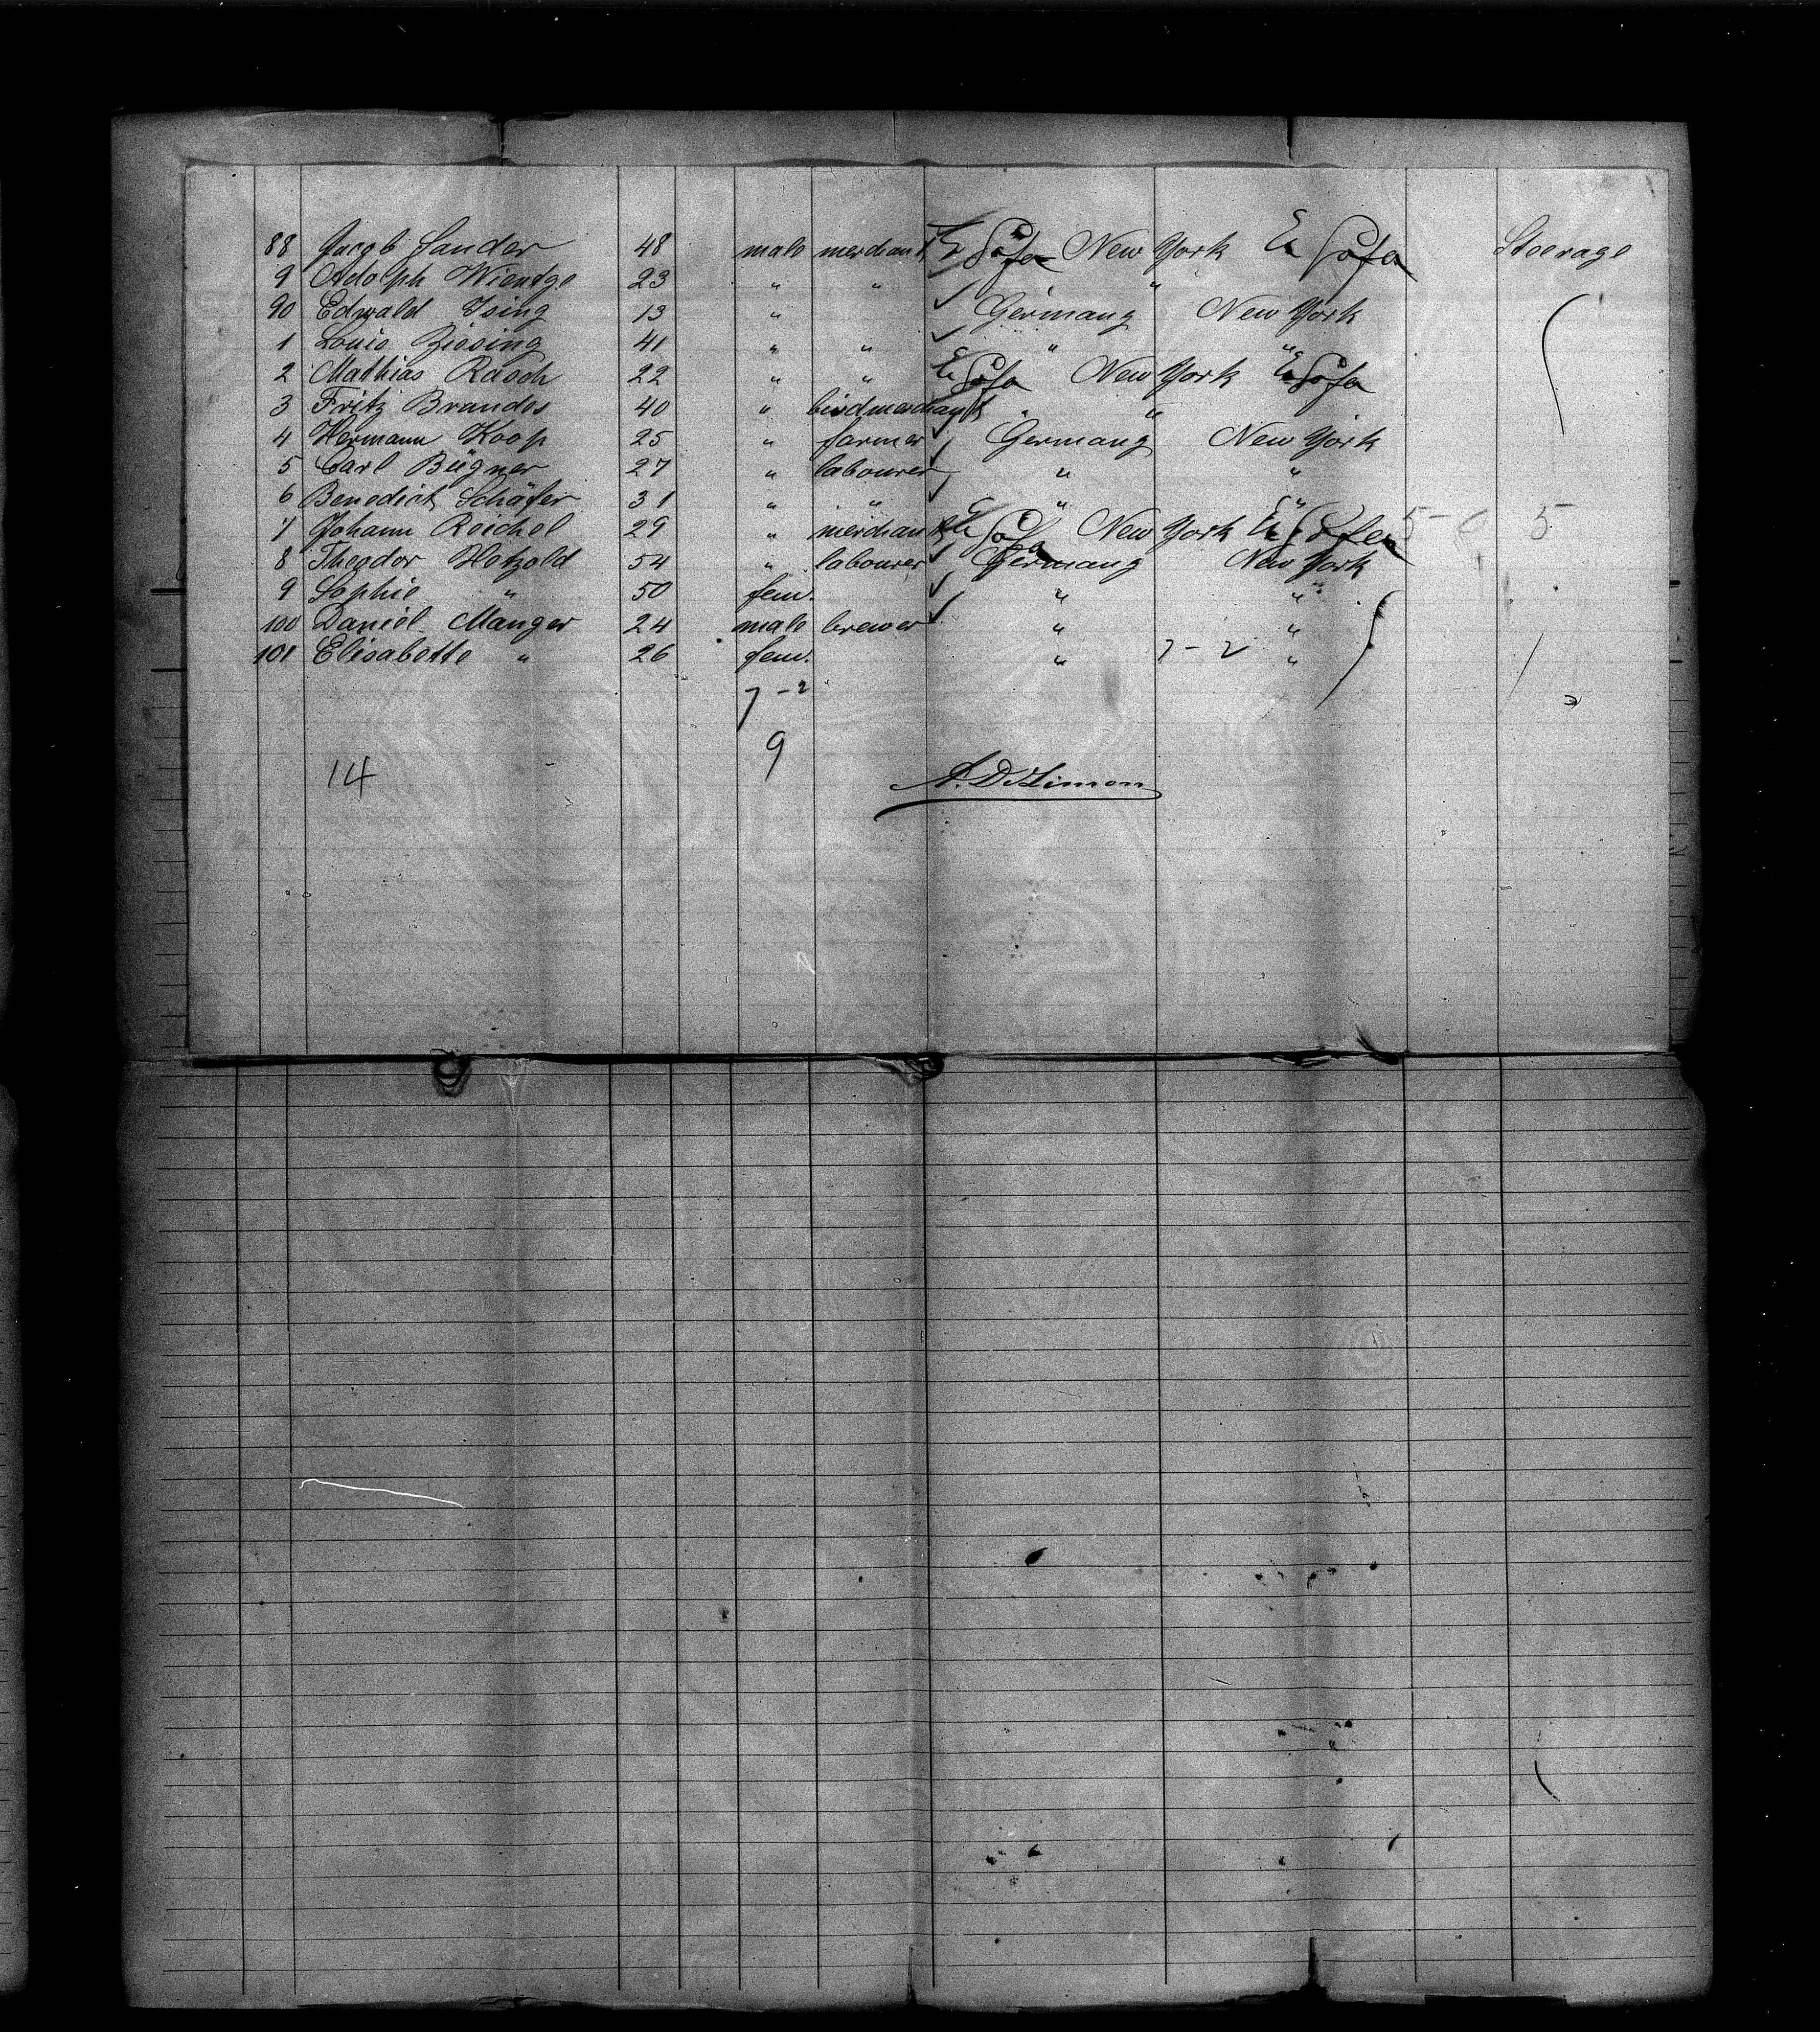 88 Jacob Sander 48 male merchant New York Steerage
9 Adolph Wientge 23 " " "
90 Edwald Ising 13 " Germany New York
1 Louis Biesing 41 " " " "
2 Mathias Rasch 22 " " New York
3 Fritz Brandes 40 " birdmerchant " "
4 Hermann Koop 25 " farmer Germany New York
5 Carl Bügner 27 " labourer " "
6 Benedict Schäfer 31 " " " "
7 Johann Reichel 29 " merchant New York 5-0 5
8 Theodor Hetzold 54 " labourer Germany New York
9 Sophie " 50 fem. " "
100 Daniel Manger 24 male brewer " "
101 Elisabette " 26 fem. " 7-2 "
7-2
9
14